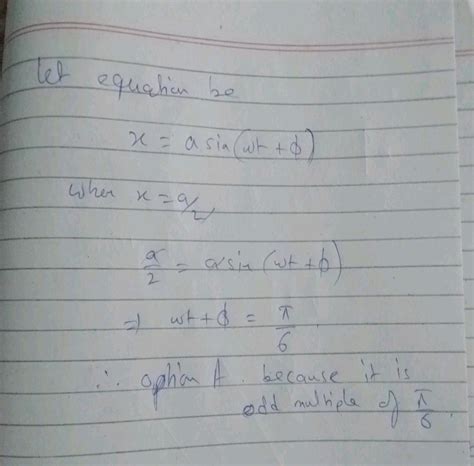 let equation be
x = a sin(wt + ϕ)
when x = a/2
a/2 = a sin (wt + ϕ)
⇒ wt + ϕ = π/6
∴ option A. because it is
odd multiple of π/6.